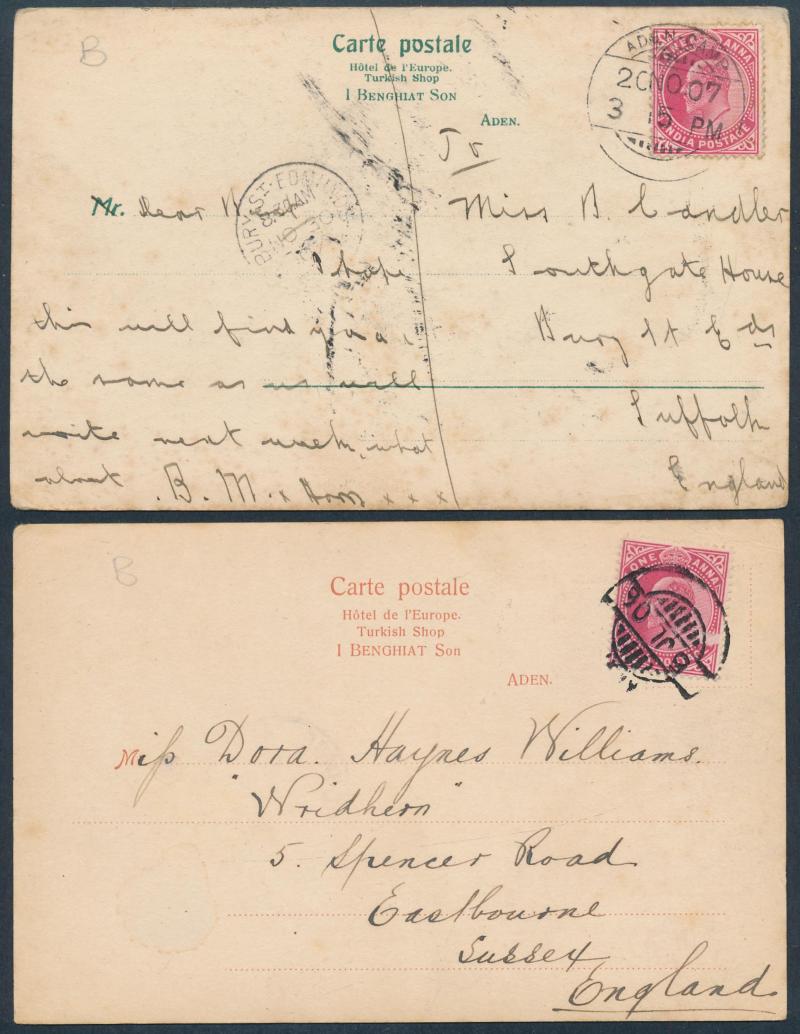 B
Carte postale
Hôtel de l'Europe.
Turkish Shop
I BENGHIAT SON
ADEN.
ONE ANNA
INDIA POSTAGE
ADEN CAMP
20 NO 07
3 15 PM
BURY ST. EDMUNDS
To
Mr. Dear
Miss B. Candler
Southgate House
Bury St Eds
Suffolk
England
I hope
this will find you a.
the same as us will
write next week, what
about B. M. x x x x
B
Carte postale
Hôtel de l'Europe.
Turkish Shop
I BENGHIAT SON
ADEN.
ONE ANNA
JL 06
Miss Dora. Haynes Williams.
"Wridhern"
5. Spencer Road
Eastbourne
Sussex
England